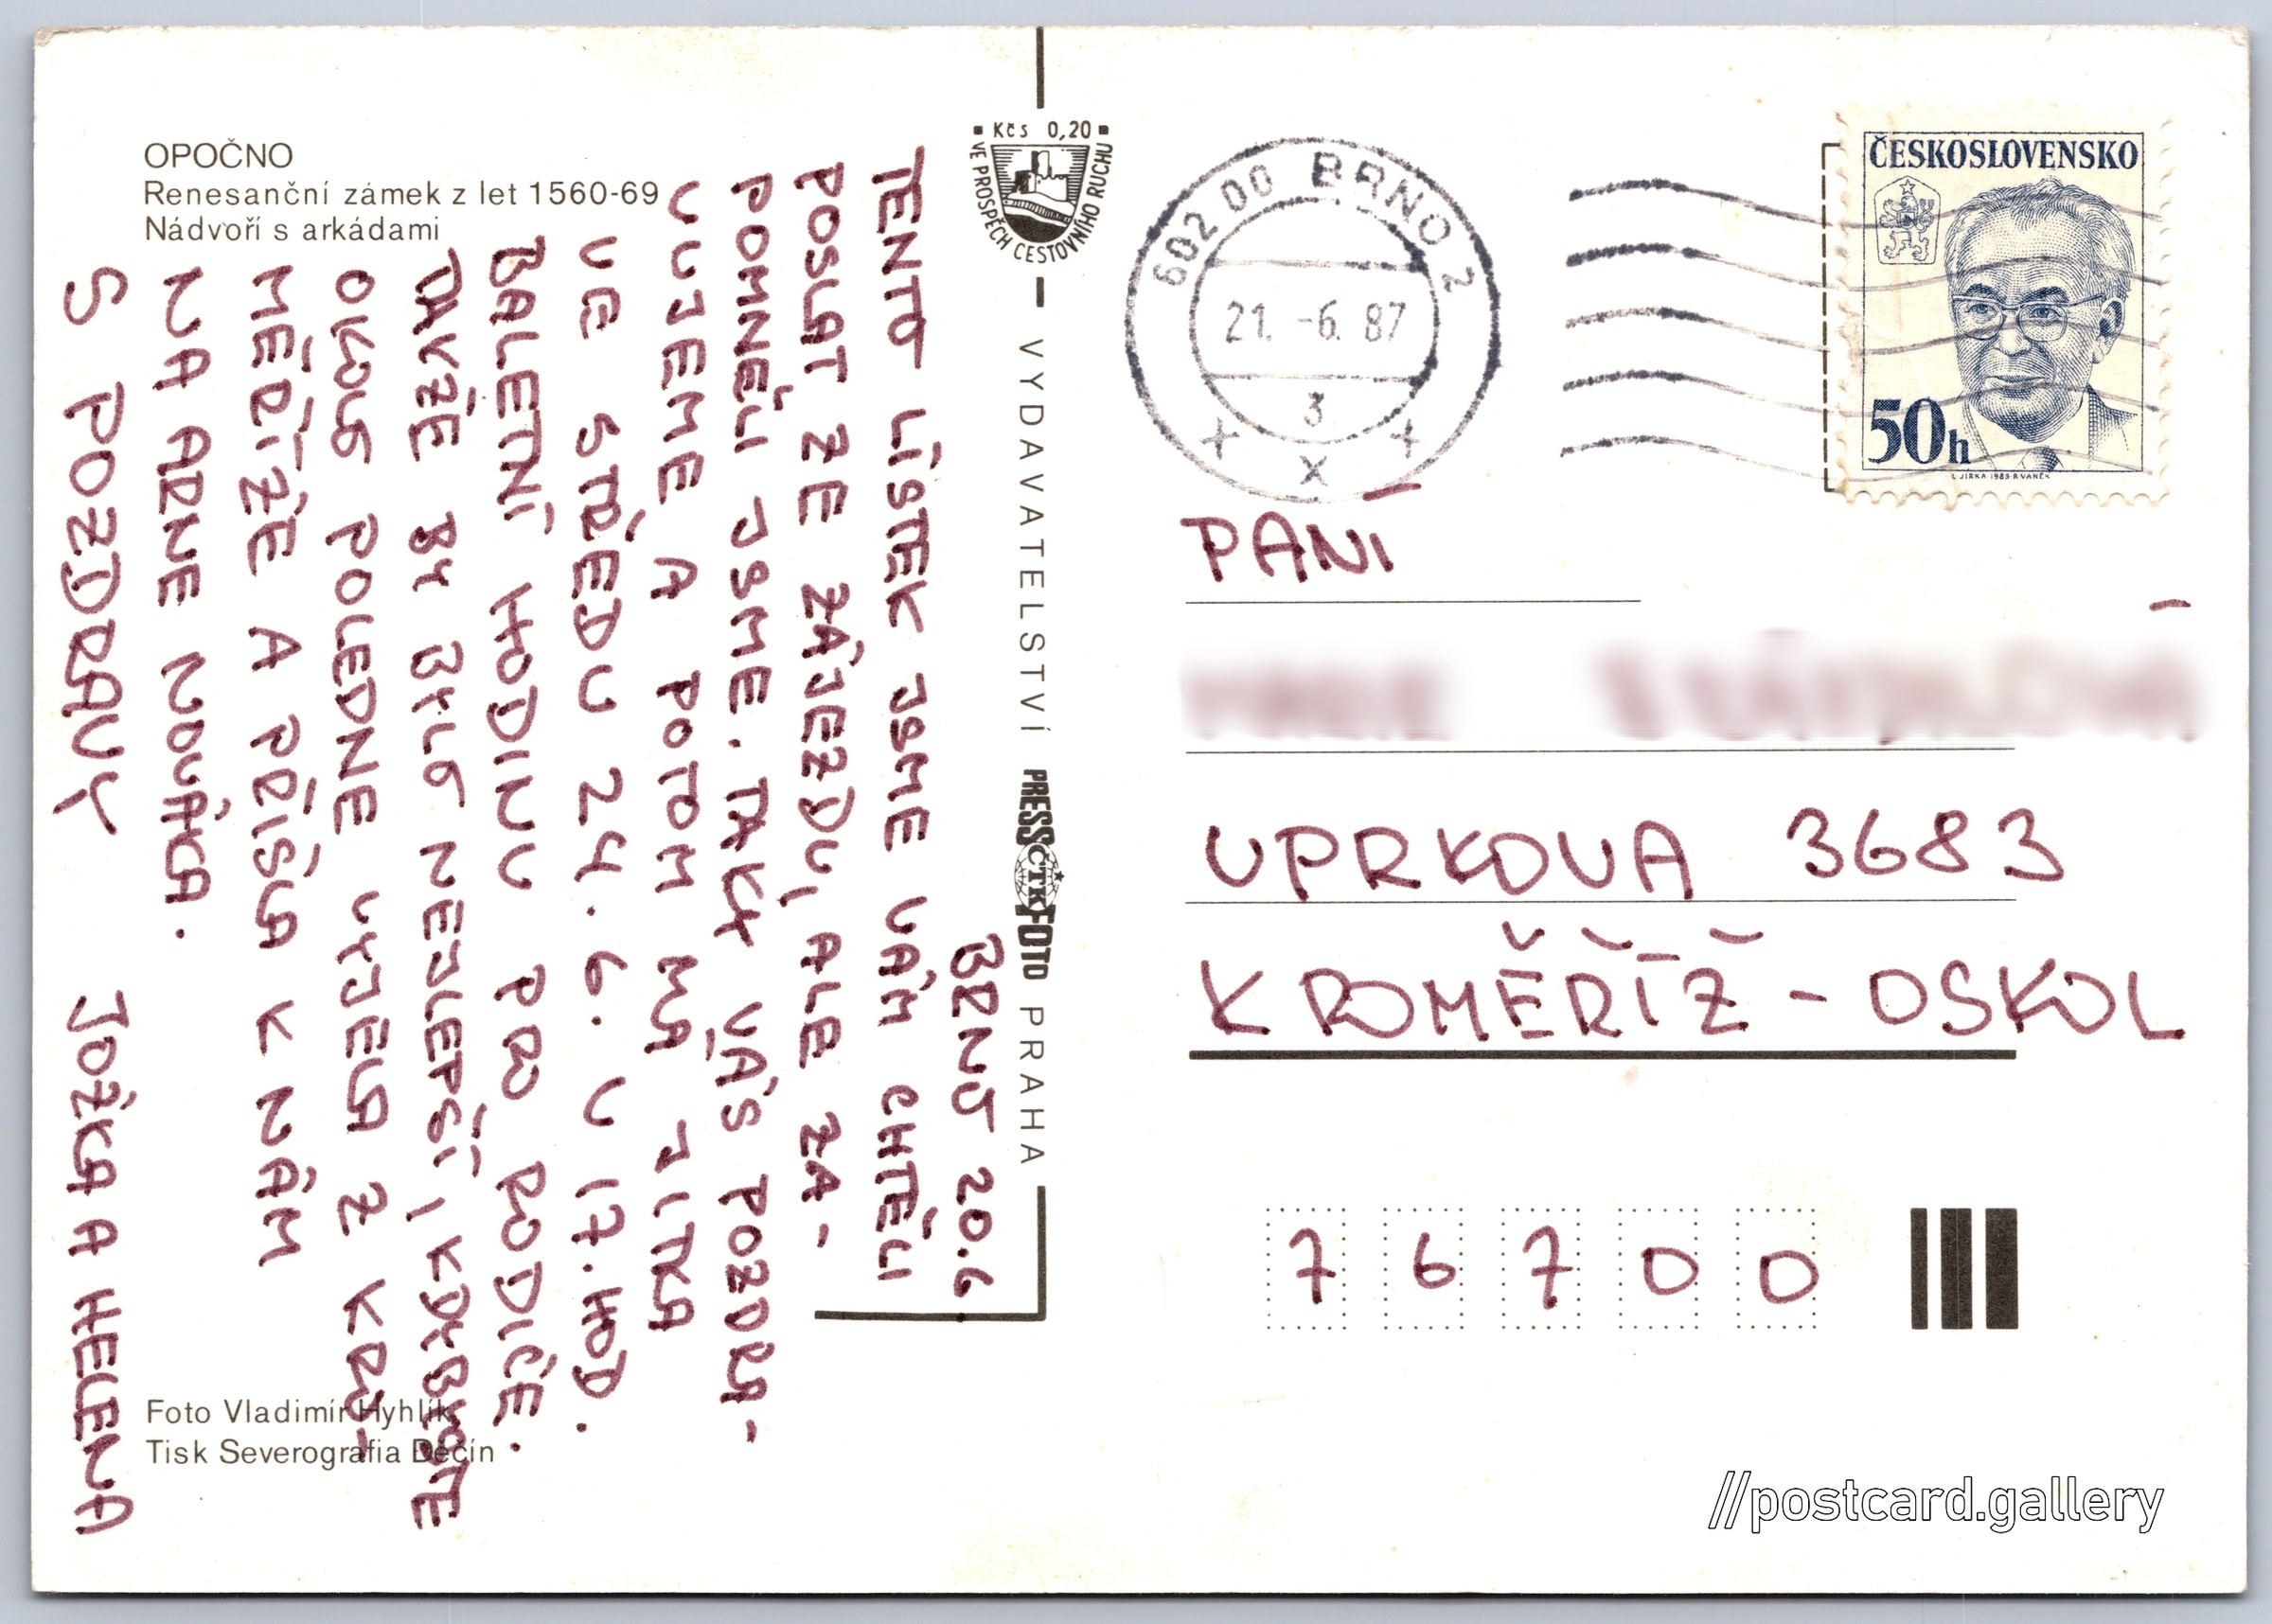 OPOČNO
Renesanční zámek z let 1560-69
Nádvoří s arkádami
BRNO 20.6.
TENTO LÍSTEK JSME VÁM CHTĚLI
POSLAT ZE ZÁJEZDU, ALE ZA-
POMNĚLI JSME. TAKY VÁS POZDRA-
VUJEME A POTOM MÁ JITKA
VE STŘEDU 24.6. V 17.HOD.
BALETNÍ HODINU PRO RODIČE.
TAKŽE BY BYLO NEJLEPŠÍ, KDYBYSTE
OKOLO POLEDNE VYJELA Z KRO-
MĚŘÍŽE A PŘIŠLA K NÁM
NA ARNE NOVÁKA.
S POZDRAVY JOŽKA A HELENA
Foto Vladimír Hyhlík
Tisk Severografia Děčín
Kčs 0,20
VE PROSPĚCH CESTOVNÍHO RUCHU
VYDAVATELSTVÍ PRESSFOTO PRAHA
ČTK
602 00 BRNO 2
21. -6. 87
3
ČESKOSLOVENSKO
50h
L. JIRKA 1983 R. VANĚK
PANÍ
UPRKOVA 3683
KROMĚŘÍŽ - OSKOL
7 6 7 0 0
//postcard.gallery